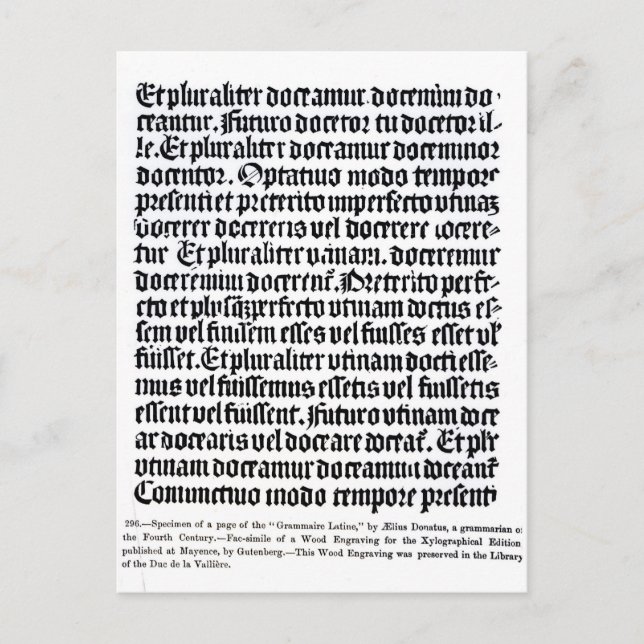 Et pluraliter doceamur docemini do-
ceantur. Futuro docetor tu docetor il-
le. Et pluraliter doceamur doceminor
docentor. Optatiuo modo tempore
presenti et preterito imperfecto vtinaʒ
docerer docereris vel docerere docere-
tur Et pluraliter vtinam. doceremur
doceremini docerent᷑. Preterito perfe-
cto et plusq̄ʒperfecto vtinam doctus es-
sem vel fuissem esses vel fuisses esset vl̓
fuisset. Et pluraliter vtinam docti esse-
mus vel fuissemus essetis vel fuissetis
essent vel fuissent. Futuro vtinam doce
ar docearis vel doceare doceat᷑. Et pl̓r
vtinam doceamur doceamini doceant᷑
Coniunctiuo modo tempore presenti
296.—Specimen of a page of the "Grammaire Latine," by Ælius Donatus, a grammarian of
the Fourth Century.—Fac-simile of a Wood Engraving for the Xylographical Edition
published at Mayence, by Gutenberg.—This Wood Engraving was preserved in the Library
of the Duc de la Vallière.